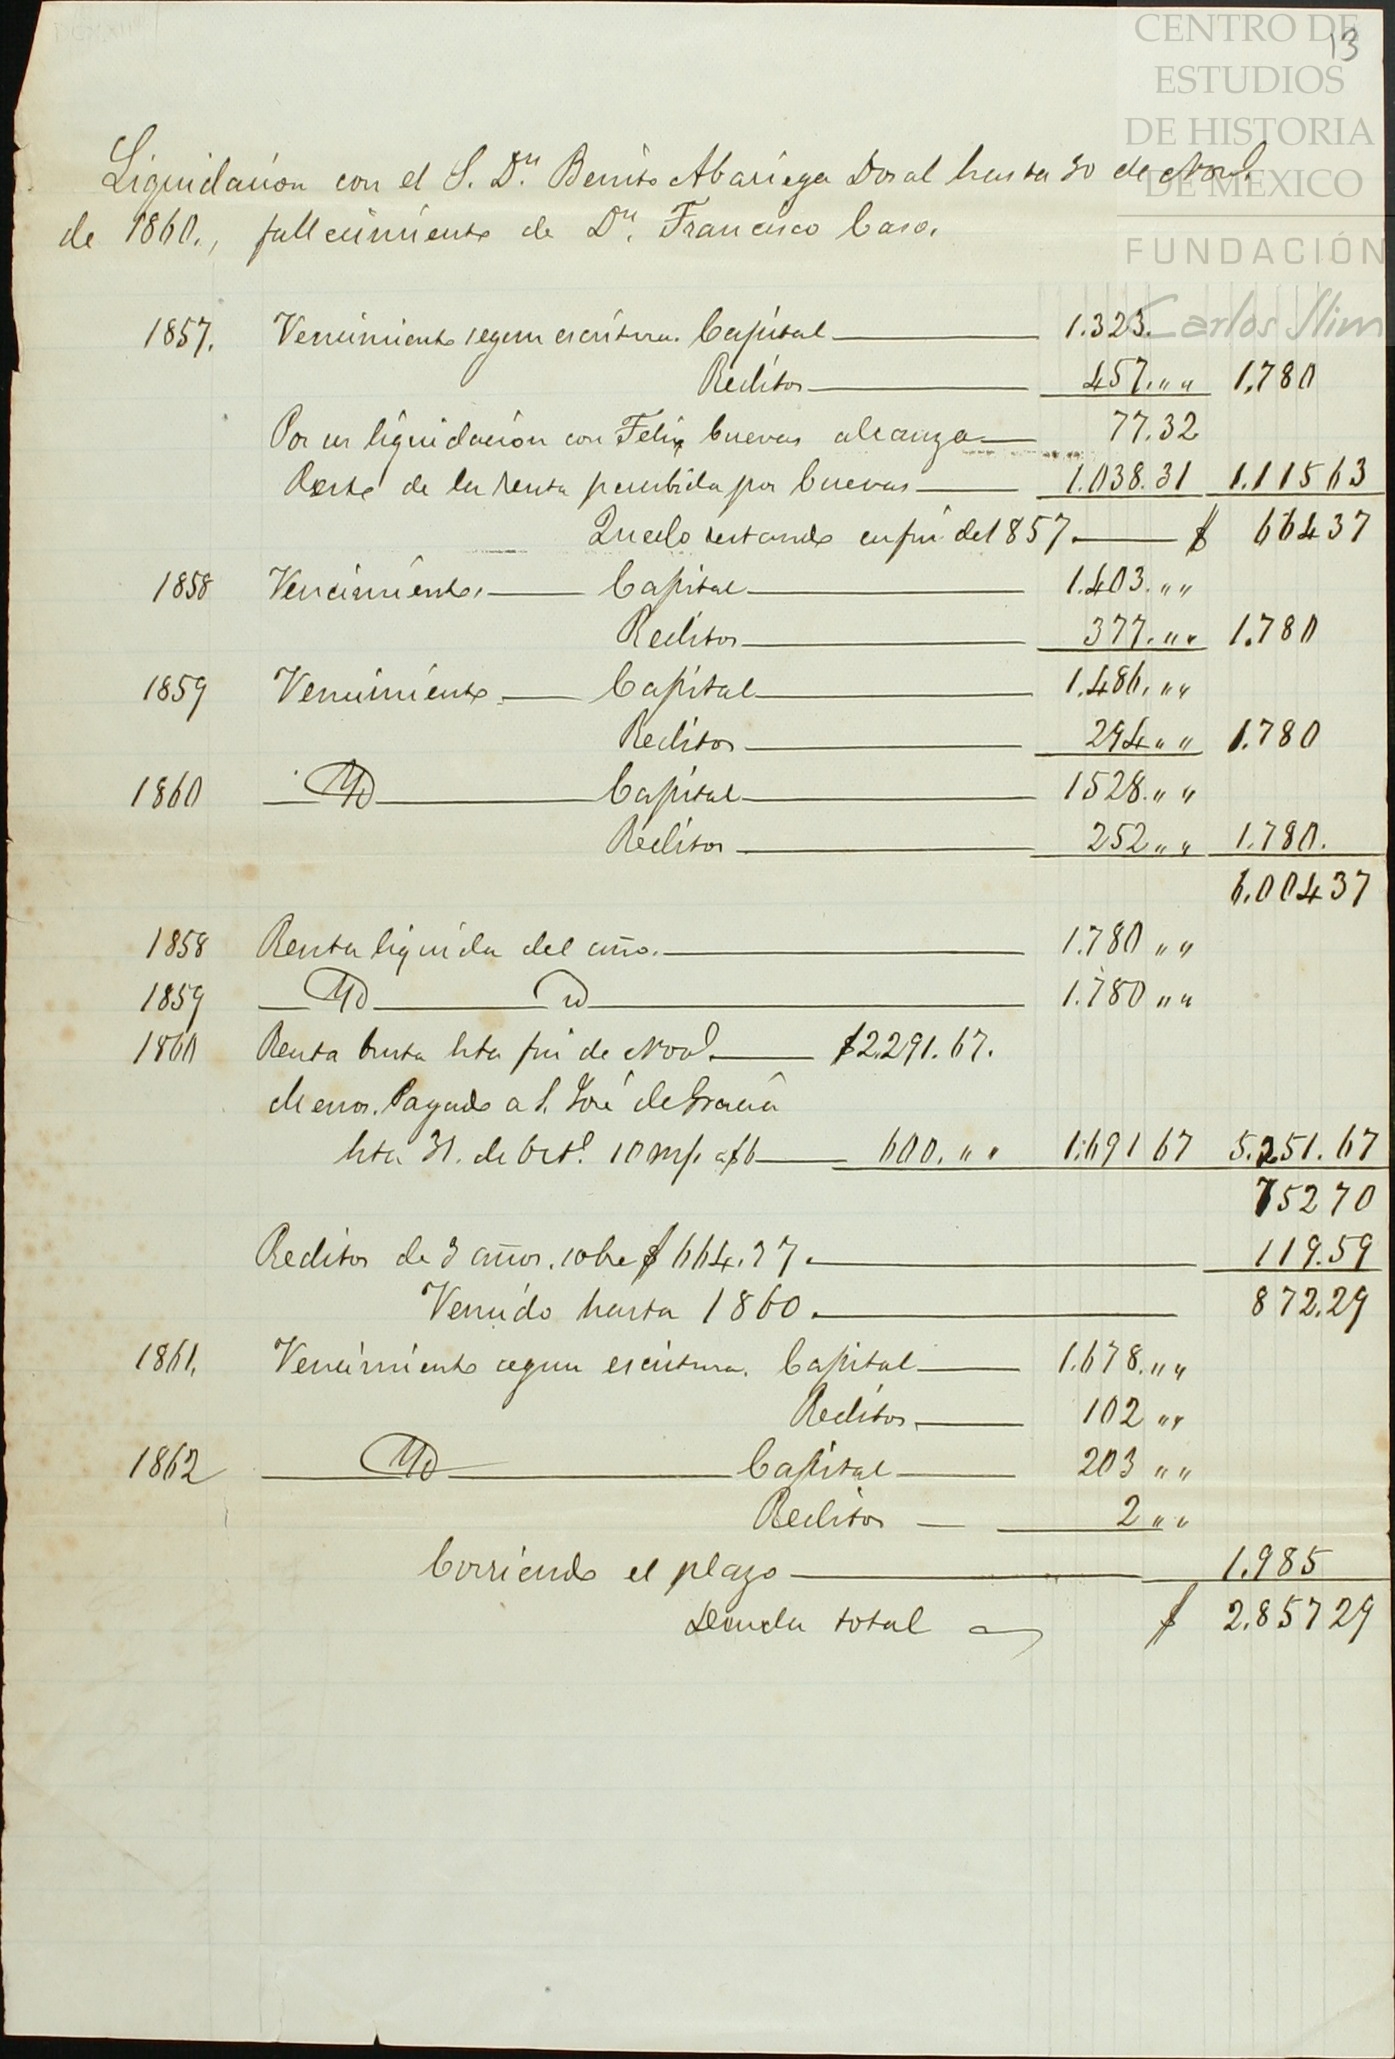 13
CENTRO DE
ESTUDIOS
DE HISTORIA
DE MEXICO
FUNDACIÓN
Carlos Slim
Liquidacion con el S. Dn. Benito Abariega Dosal hasta 30 de Novl.
de 1860., fallecimiento de Dn. Francisco Caso.
1857. Vencimiento segun escritura. Capital 1.323.
Reditos 457. „ „ 1,780
Por su liquidacion con Felix Cuevas alcanza 77.32
Resto de la renta percibida por Cuevas 1.038.31 1.115 63
Quedo restando en fin del 1857. $ 664 37
1858 Vencimiento. Capital 1.403. „ „
Reditos 377. „ „ 1.780
1859 Vencimiento Capital 1.486. „ „
Reditos 294 „ „ 1.780
1860 Yd Capital 1528. „ „
Reditos 252 „ „ 1.780.
6.004 37
1858 Renta liquida del año. 1.780 „ „
1859 Yd id 1.780 „ „
1860 Renta bruta hta fin de Novl. $2.291.67.
Menos. Pagado a S. José de Gracia
hta 31. de Octl. 10 m/s a $6 600. „ „ 1.691 67 5.251.67
752 70
Reditos de 3 años. sobre $664.37. 119.59
Vencido hasta 1860. 872.29
1861. Vencimiento segun escritura. Capital 1.678. „ „
Reditos. 102 „ „
1862 Yd Capital 203 „ „
Reditos 2 „ „
Corriendo el plazo 1.985
Deuda total $ 2.857 29